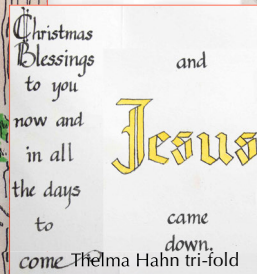 Christmas
Blessings
to you
now and
in all
the days
to
come
and
Jesus
came
down.
Thelma Hahn tri-fold